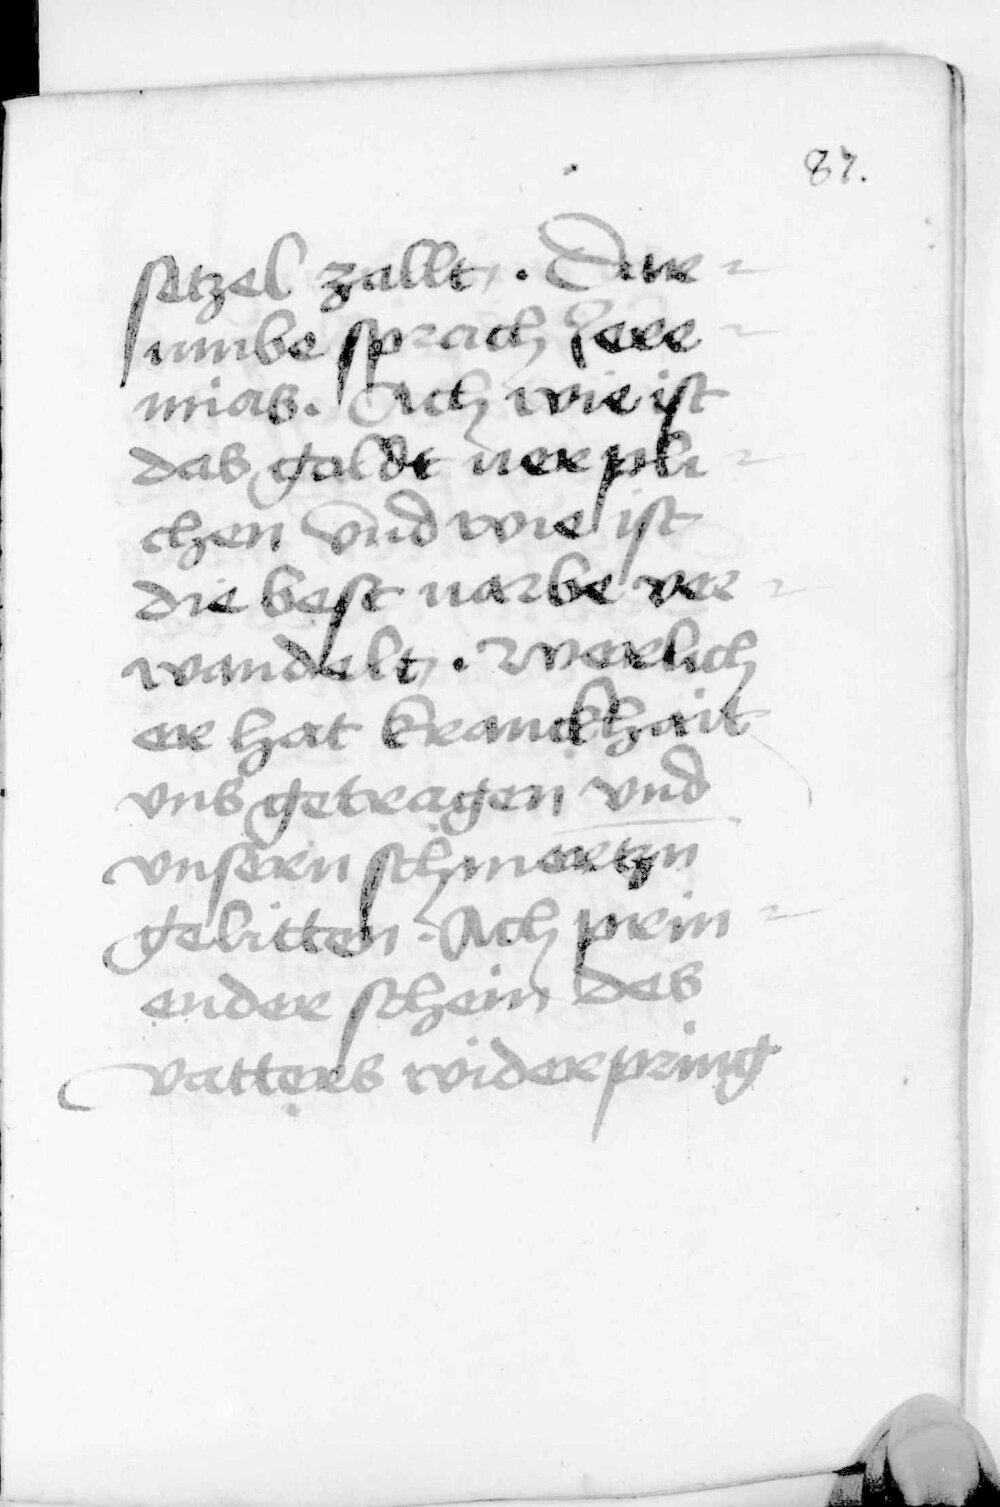 87.
setzel zallt. Dar-
umbe sprach Jere-
mias. Ach wie ist
das goldt uerpli-
chen vnd wie ist
die best uarbe ver-
wandelt. Werlich
er hat kranckhait
vns getragen vnd
vnsern schmertzn
gelitten. Ach prin-
ender schein des
vatters widerpring